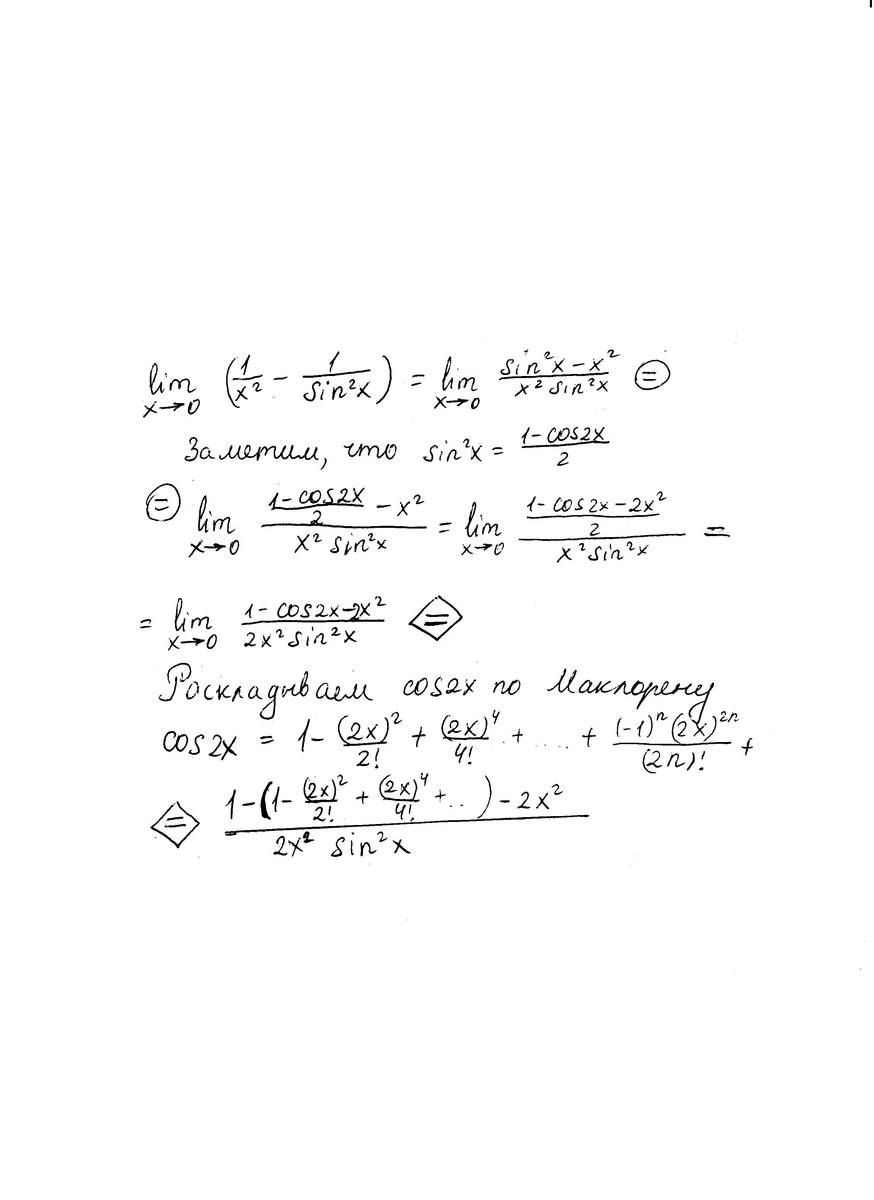 lim x→0 (1/x² − 1/sin²x) = lim x→0 (sin²x − x²)/(x² sin²x) (=)
Заметим, что sin²x = (1−cos2x)/2
(=) lim x→0 ((1−cos2x)/2 − x²)/(x² sin²x) = lim x→0 ((1−cos2x−2x²)/2)/(x² sin²x) =
= lim x→0 (1−cos2x−2x²)/(2x² sin²x) <=>
Роскладываем cos2x по Маклорену
cos2x = 1 − (2x)²/2! + (2x)⁴/4! + .... + (−1)ⁿ(2x)²ⁿ/(2n)! +
<=> (1−(1−(2x)²/2! + (2x)⁴/4! + ..) − 2x²)/(2x² sin²x)